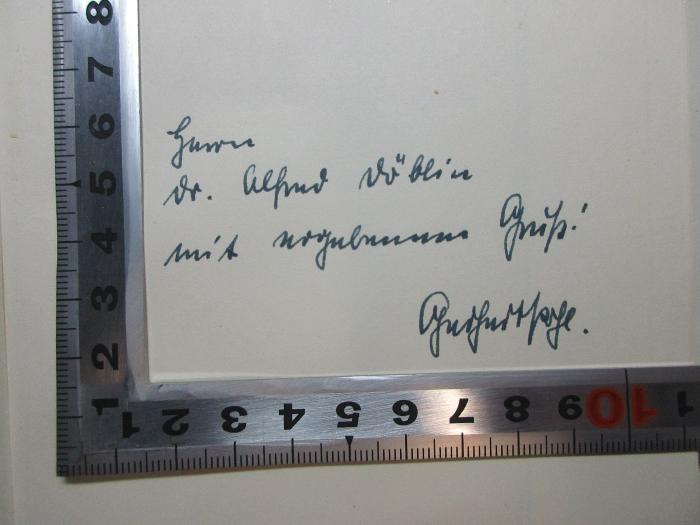 Herrn
Dr. Alfred Döblin
mit ergebenem Gruß!
Gerhart Pohl.
8
7
6
5
4
3
2
1
1 2 3 4 5 6 7 8 9 10 11